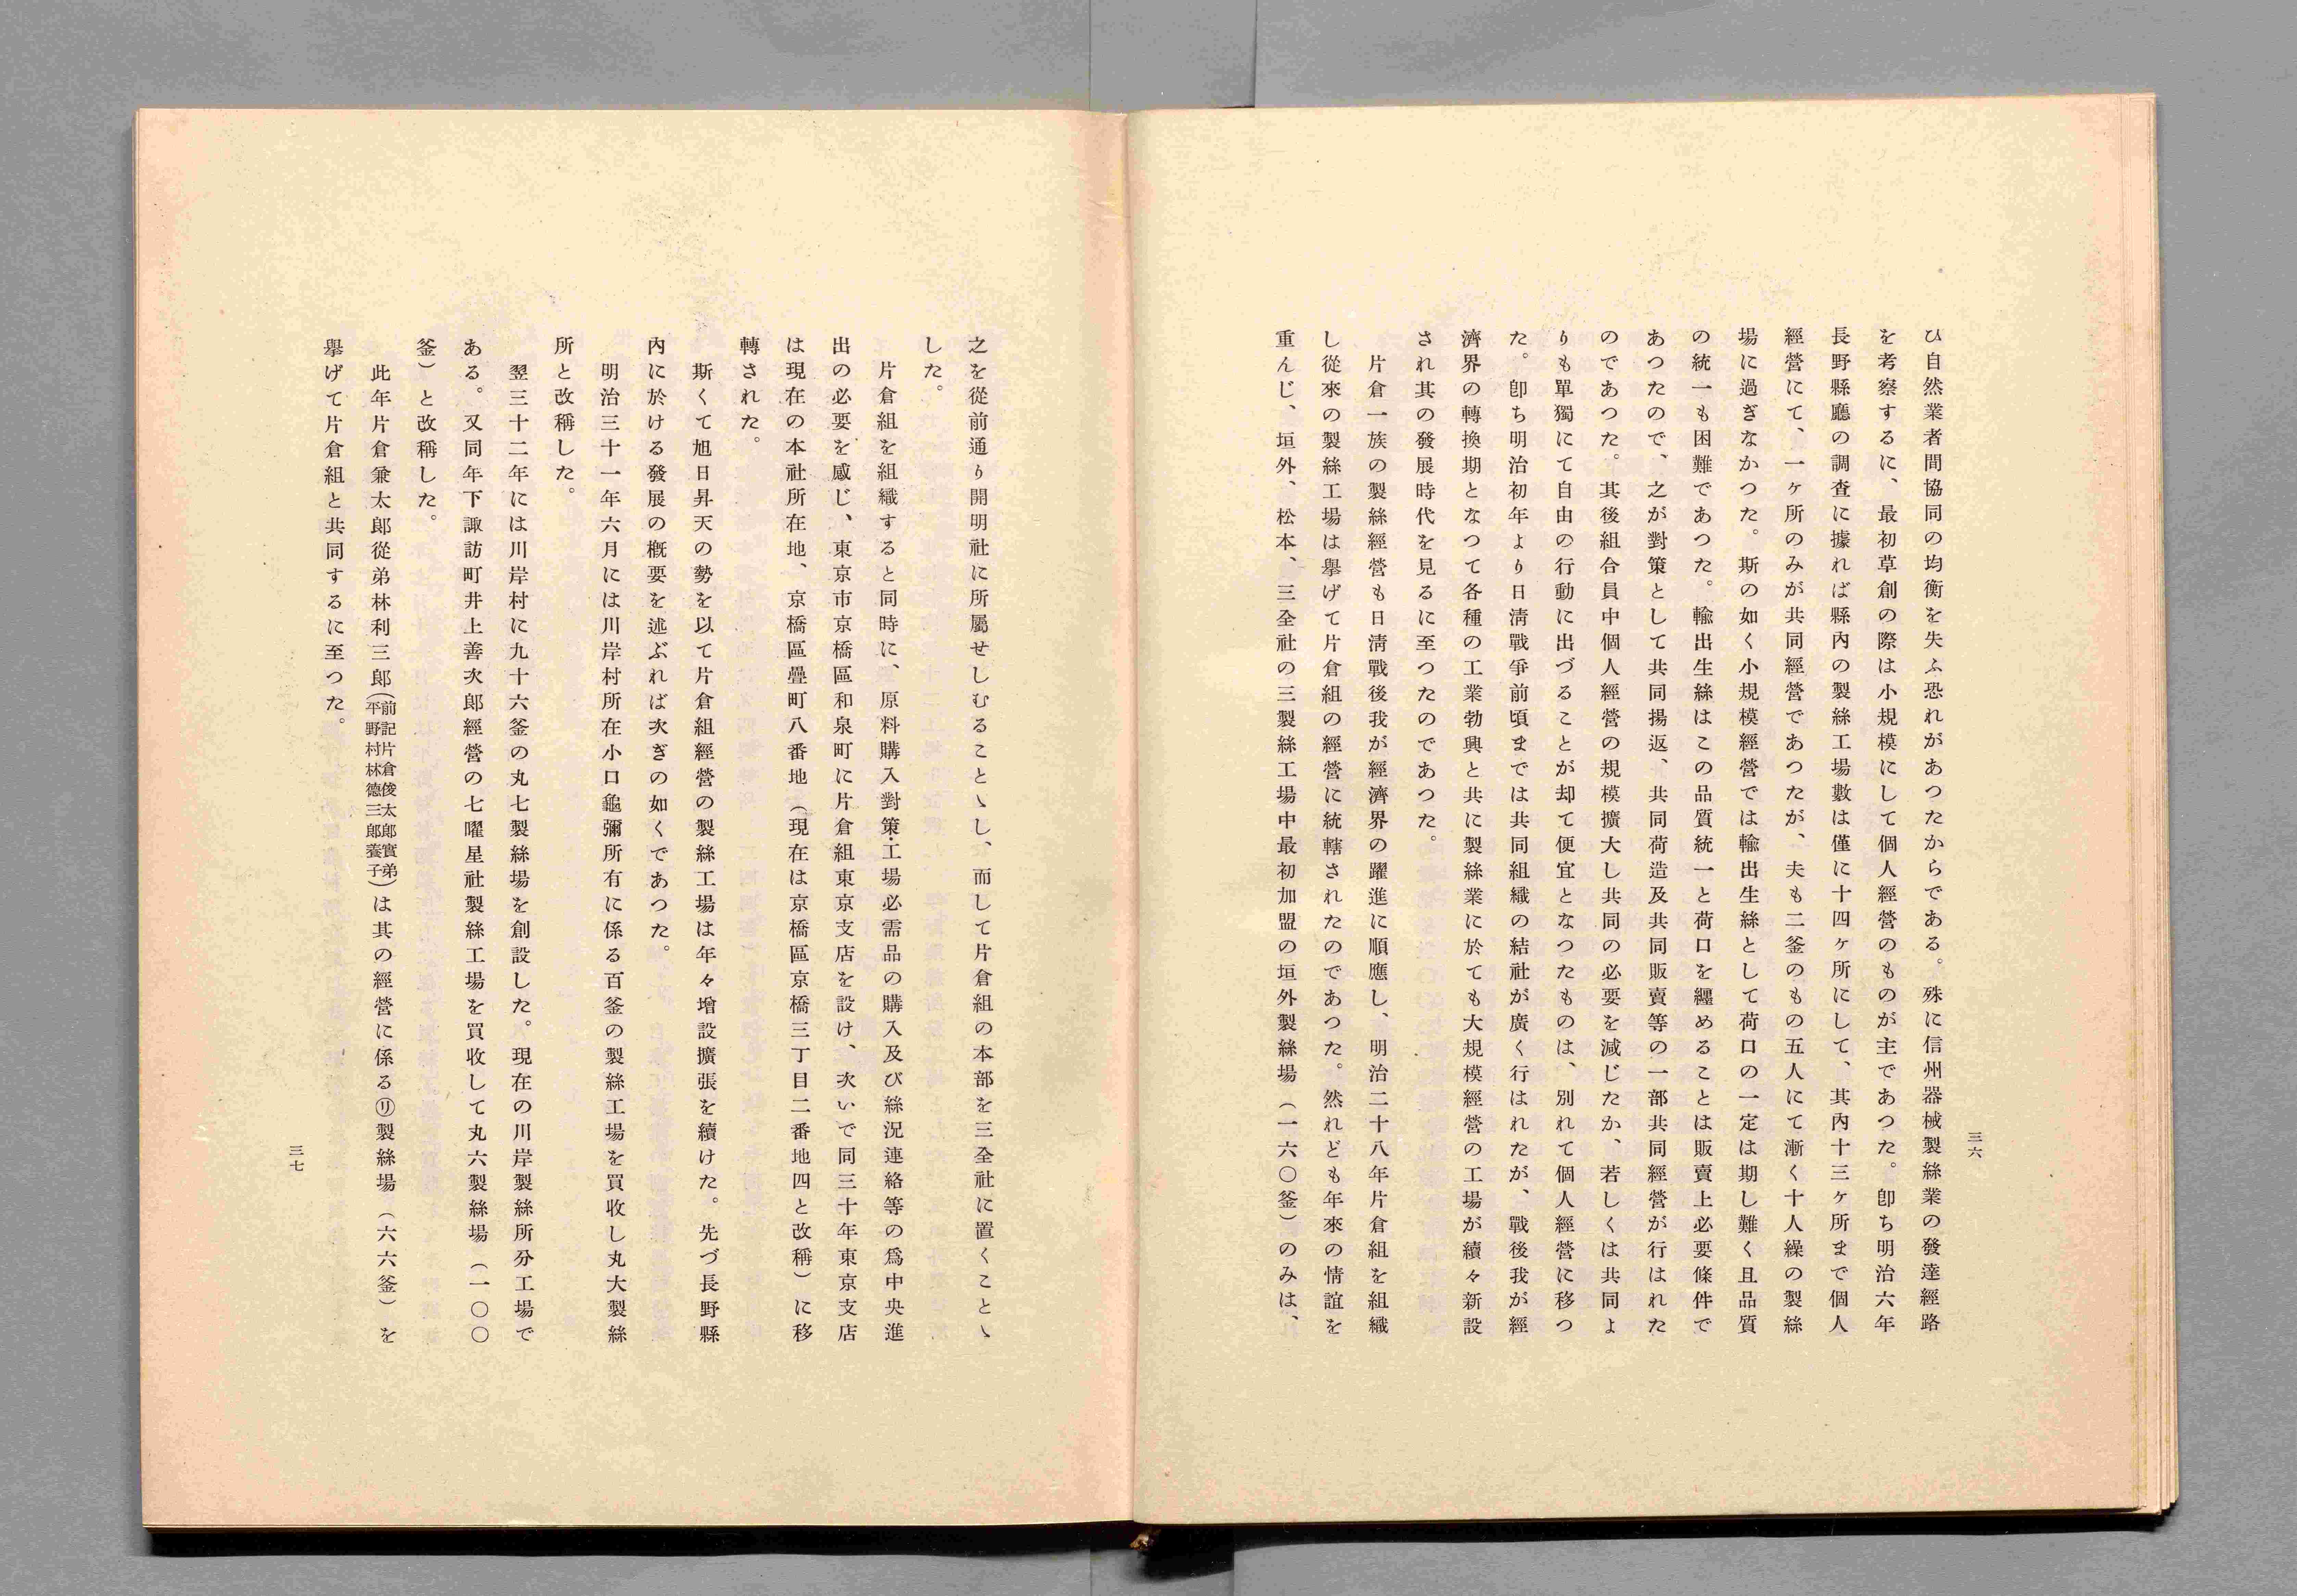 三六
ひ自然業者間協同の均衡を失ふ恐れがあつたからである。殊に信州器械製絲業の發達經路
を考察するに、最初草創の際は小規模にして個人經營のものが主であつた。卽ち明治六年
長野縣廳の調査に據れば縣內の製絲工場數は僅に十四ヶ所にして、其內十三ヶ所まで個人
經營にて、一ヶ所のみが共同經營であつたが、夫も二釜のもの五人にて漸く十人繰の製絲
場に過ぎなかつた。斯の如く小規模經營では輸出生絲として荷口の一定は期し難く且品質
の統一も困難であつた。輸出生絲はこの品質統一と荷口を纏めることは販賣上必要條件で
あつたので、之が對策として共同揚返、共同荷造及共同販賣等の一部共同經營が行はれた
のであつた。其後組合員中個人經營の規模擴大し共同の必要を減じたか、若しくは共同よ
りも單獨にて自由の行動に出づることが却て便宜となつたものは、別れて個人經營に移つ
た。卽ち明治初年より日淸戰爭前頃までは共同組織の結社が廣く行はれたが、戰後我が經
濟界の轉換期となつて各種の工業勃興と共に製絲業に於ても大規模經營の工場が續々新設
され其の發展時代を見るに至つたのであつた。
片倉一族の製絲經營も日淸戰後我が經濟界の躍進に順應し、明治二十八年片倉組を組織
し從來の製絲工場は擧げて片倉組の經營に統轄されたのであつた。然れども年來の情誼を
重んじ、垣外、松本、三全社の三製絲工場中最初加盟の垣外製絲場（一六〇釜）のみは、
之を從前通り開明社に所屬せしむることゝし、而して片倉組の本部を三全社に置くことゝ
した。
片倉組を組織すると同時に、原料購入對策・工場必需品の購入及び絲況連絡等の爲中央進
出の必要を感じ、東京市京橋區和泉町に片倉組東京支店を設け、次いで同三十年東京支店
は現在の本社所在地、京橋區疊町八番地（現在は京橋區京橋三丁目二番地四と改稱）に移
轉された。
斯くて旭日昇天の勢を以て片倉組經營の製絲工場は年々增設擴張を續けた。先づ長野縣
內に於ける發展の槪要を述ぶれば次ぎの如くであつた。
明治三十一年六月には川岸村所在小口龜彌所有に係る百釜の製絲工場を買收し丸大製絲
所と改稱した。
翌三十二年には川岸村に九十六釜の丸七製絲場を創設した。現在の川岸製絲所分工場で
ある。又同年下諏訪町井上善次郞經營の七曜星社製絲工場を買收して丸六製絲場（一〇〇
釜）と改稱した。
此年片倉兼太郞從弟林利三郞（前記片倉俊太郞實弟平野村林德三郞養子）は其の經營に係る㋷製絲場（六六釜）を
擧げて片倉組と共同するに至つた。
三七